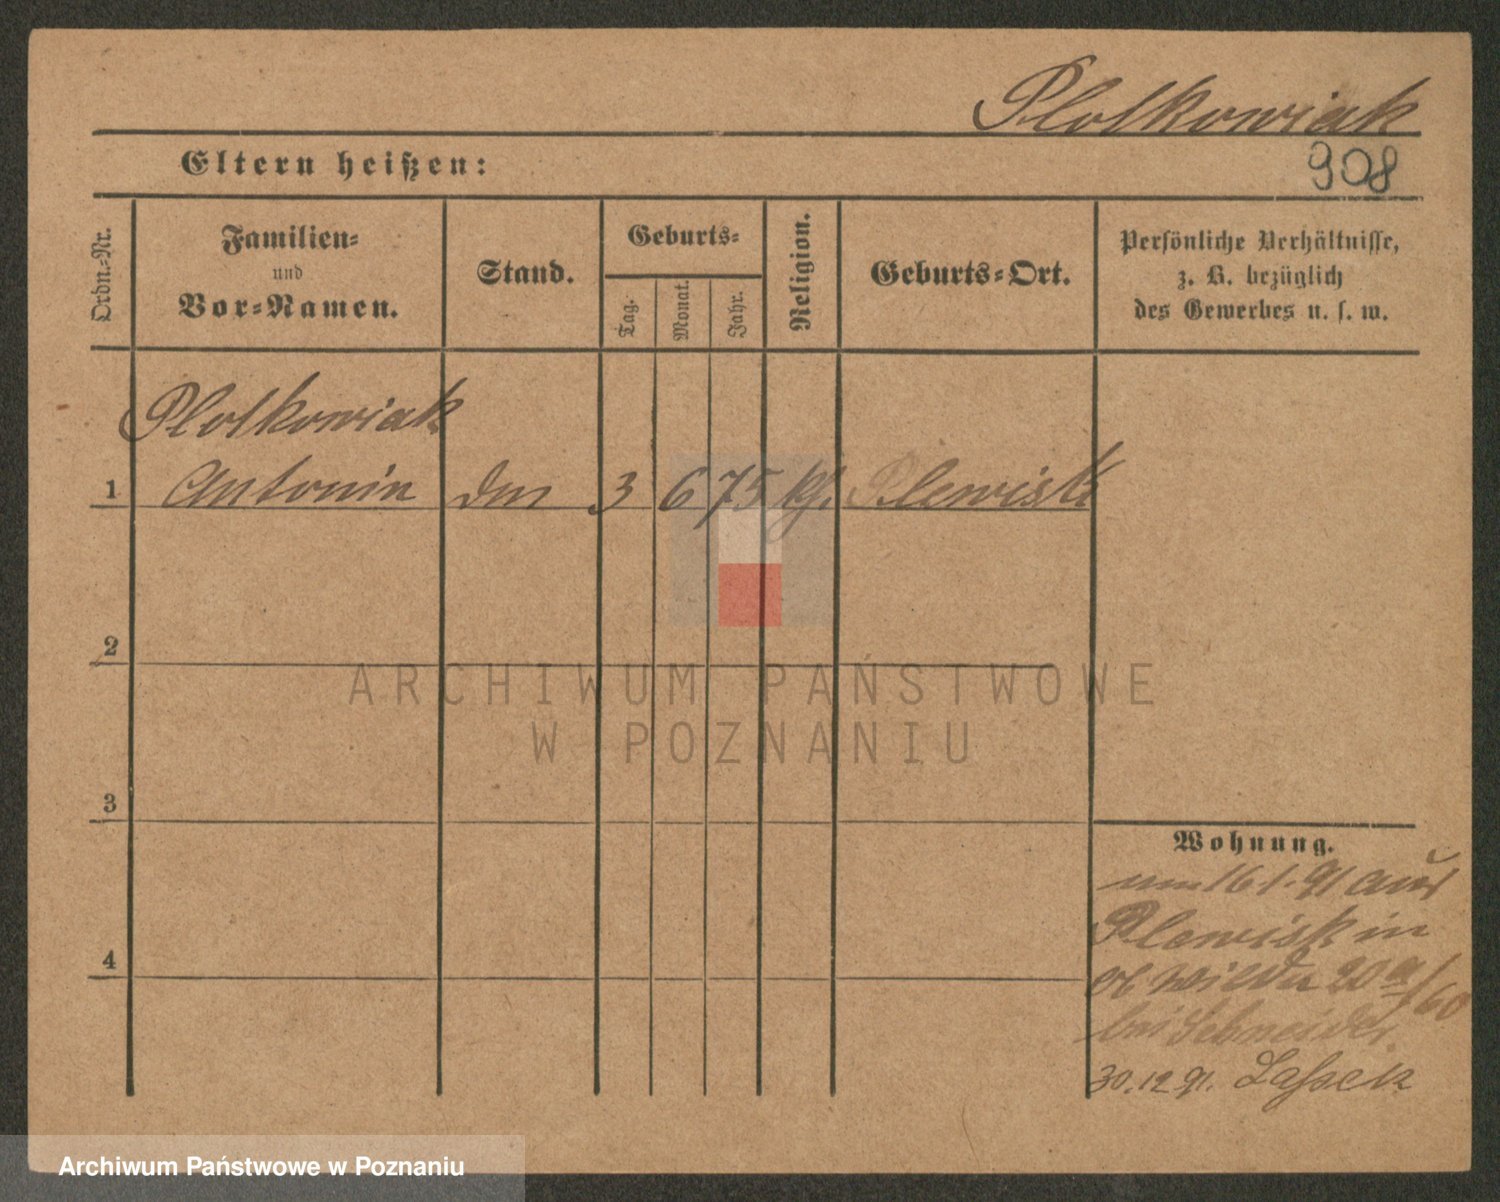 Plotkowiak
908
Eltern heißen:
Ordn.-Nr.
Familien-
und
Vor-Namen.
Stand.
Geburts-
Tag.
Monat.
Jahr.
Religion.
Geburts-Ort.
Persönliche Verhältnisse,
z. B. bezüglich
des Gewerbes u. s. w.
Plotkowiak
1 Antonin 3 6 75 Plewisk
2
3
4
ARCHIWUM PAŃSTWOWE
W POZNANIU
Wohnung.
16 1. 91 aus
Plewisk in
Wilda 20
bei Schneider
30.12 91.
Archiwum Państwowe w Poznaniu